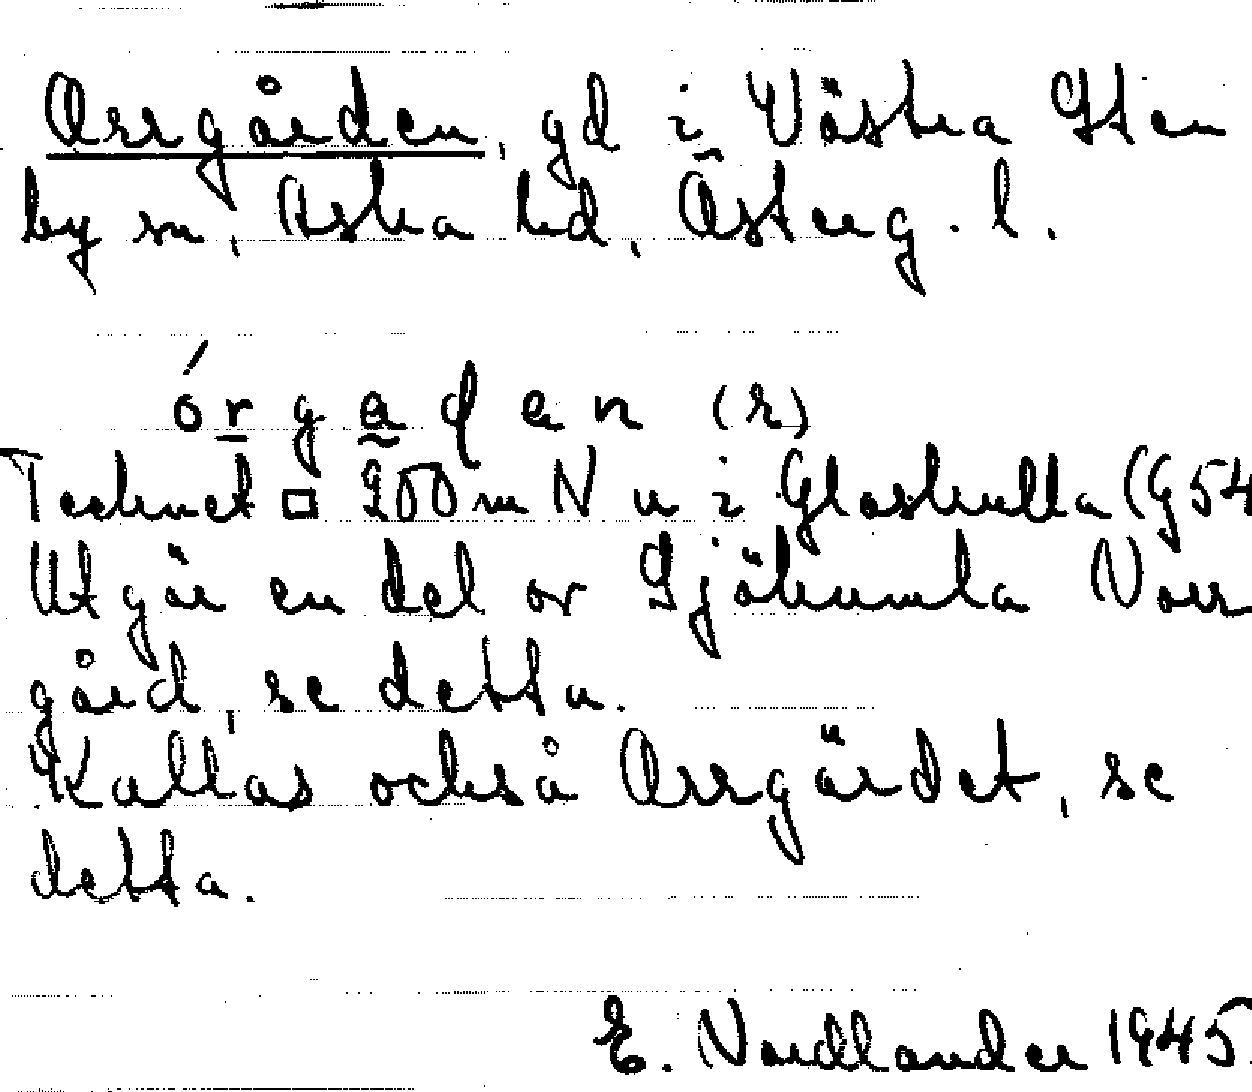 Orrgården, gd i Västra Sten
by sn, Aska hd, Österg. l.
órgaden (r)
Tecknet □ 900 m N u i Gloskulla (954
Utgör en del av Sjökumla Norr
gård, se detta.
Kallas också Orrgärdet, se
detta.
E. Nordlander 1945.